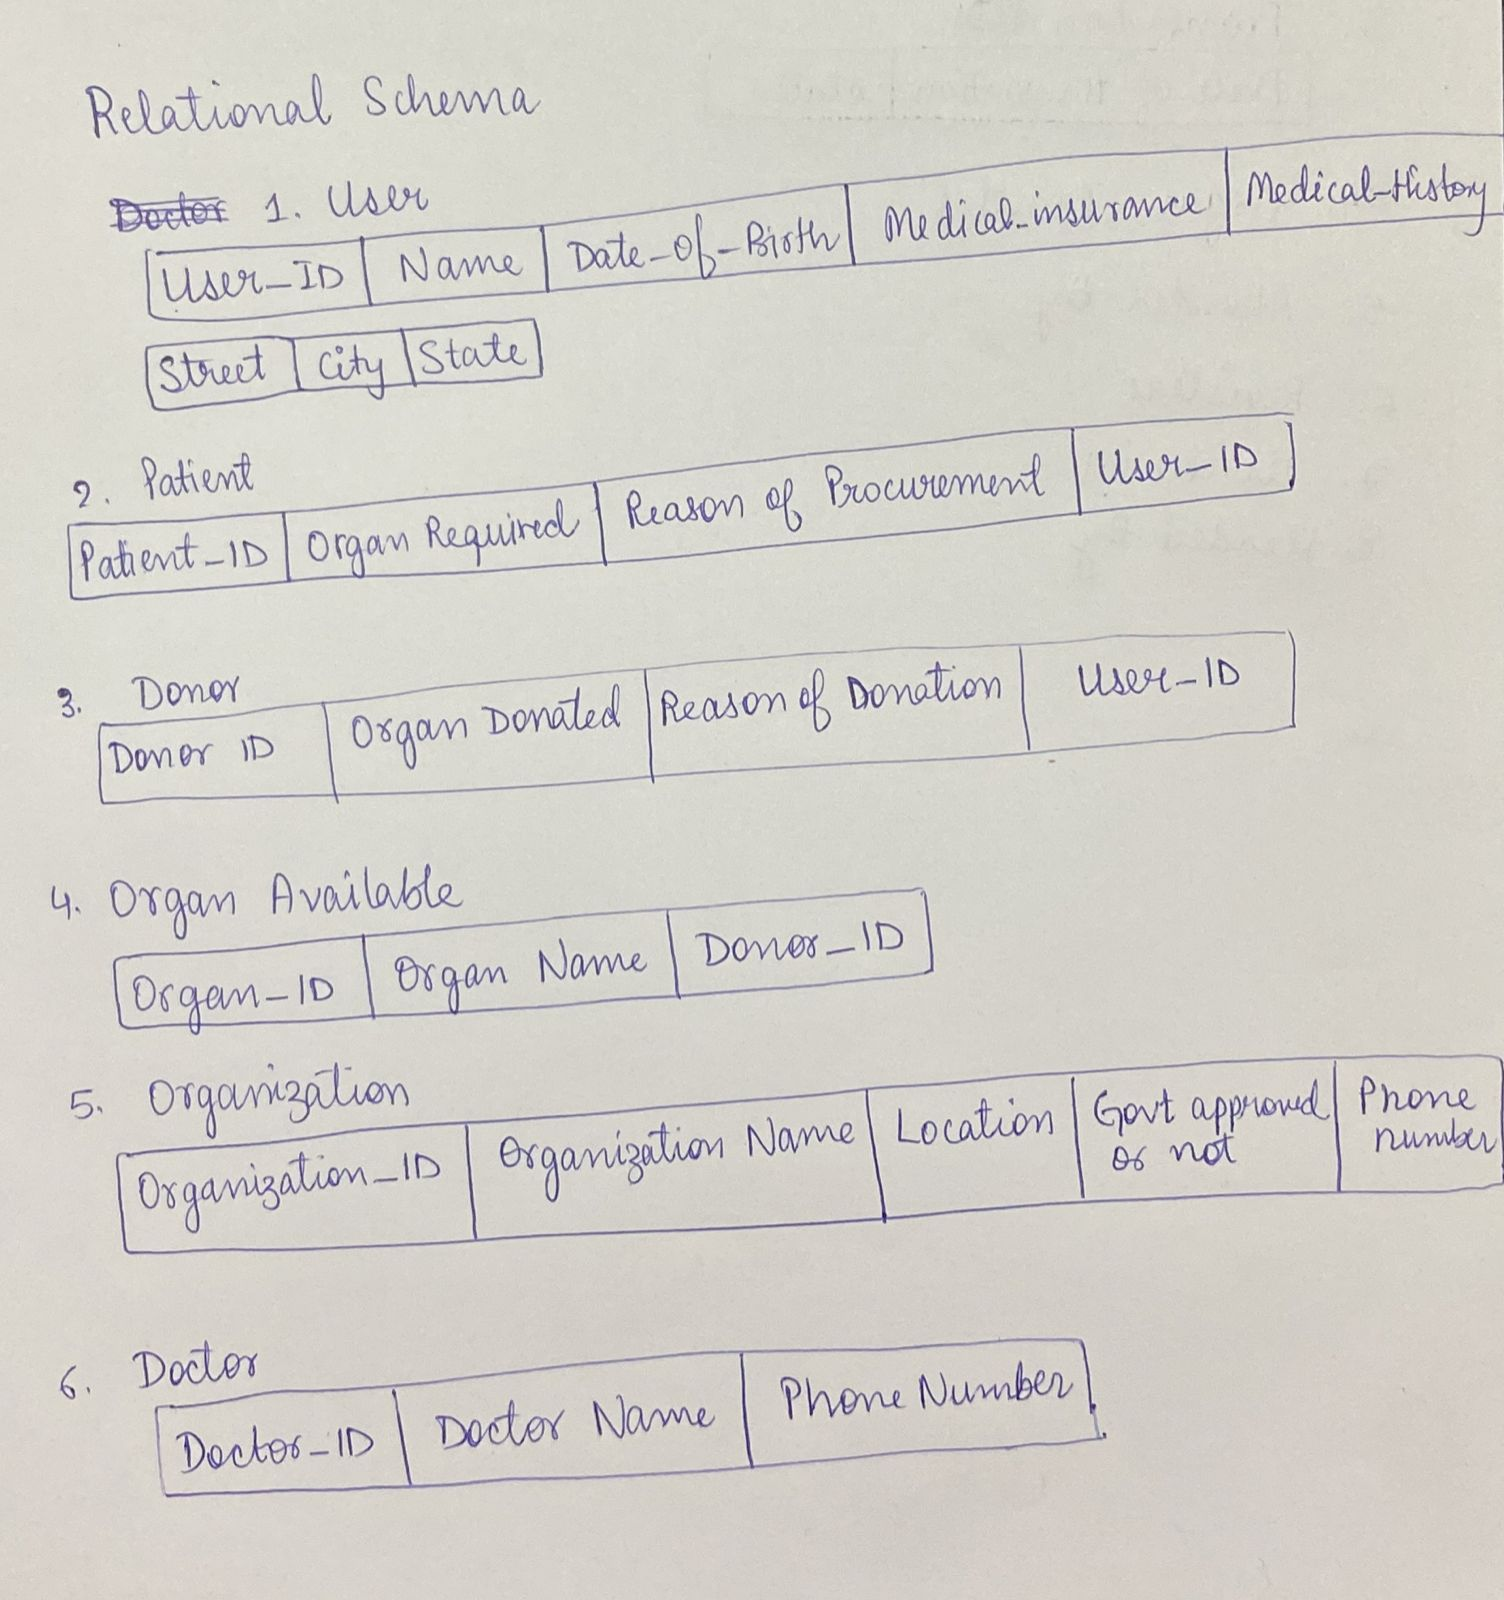 Relational Schema
Doctor 1. User
User_ID Name Date_of_Birth Medical_insurance Medical_History
Street City State
2. Patient
Patient_ID Organ Required Reason of Procurement User_ID
3. Donor
Donor ID Organ Donated Reason of Donation User_ID
4. Organ Available
Organ_ID Organ Name Donor_ID
5. Organization
Organization_ID Organization Name Location Govt approved Phone
or not number
6. Doctor
Doctor_ID Doctor Name Phone Number